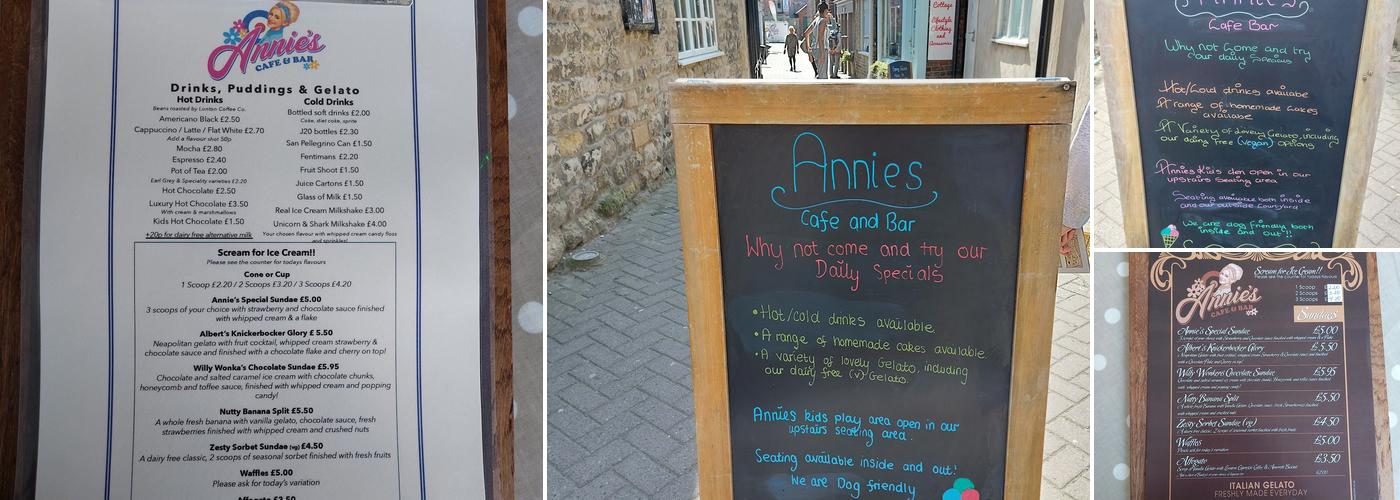 Annie's
CAFE & BAR
Drinks, Puddings & Gelato
Hot Drinks
Beans roasted by Lonton Coffee Co.
Americano Black £2.50
Cappuccino / Latte / Flat White £2.70
Add a flavour shot 50p
Mocha £2.80
Espresso £2.40
Pot of Tea £2.00
Earl Grey & Speciality varieties £2.20
Hot Chocolate £2.50
Luxury Hot Chocolate £3.50
With cream & marshmallows
Kids Hot Chocolate £1.50
+20p for dairy free alternative milk
Cold Drinks
Bottled soft drinks £2.00
Coke, diet coke, sprite
J20 bottles £2.30
San Pellegrino Can £1.50
Fentimans £2.20
Fruit Shoot £1.50
Juice Cartons £1.50
Glass of Milk £1.50
Real Ice Cream Milkshake £3.00
Unicorn & Shark Milkshake £4.00
Your chosen flavour with whipped cream candy floss
and sprinkles!
Scream for Ice Cream!!
Please see the counter for todays flavours
Cone or Cup
1 Scoop £2.20 / 2 Scoops £3.20 / 3 Scoops £4.20
Annie's Special Sundae £5.00
3 scoops of your choice with strawberry and chocolate sauce finished
with whipped cream & a flake
Albert's Knickerbocker Glory £ 5.50
Neapolitan gelato with fruit cocktail, whipped cream strawberry &
chocolate sauce and finished with a chocolate flake and cherry on top!
Willy Wonka's Chocolate Sundae £5.95
Chocolate and salted caramel ice cream with chocolate chunks,
honeycomb and toffee sauce, finished with whipped cream and popping
candy!
Nutty Banana Split £5.50
A whole fresh banana with vanilla gelato, chocolate sauce, fresh
strawberries finished with whipped cream and crushed nuts
Zesty Sorbet Sundae (vg) £4.50
A dairy free classic, 2 scoops of seasonal sorbet finished with fresh fruits
Waffles £5.00
Please ask for today's variation
Affogato £3.50
Cottage
Lifestyle
Clothing
and
Accessories
Annies
Cafe and Bar
Why not come and try our
Daily Specials
•Hot/cold drinks available
•A range of homemade cakes available
•A variety of lovely Gelato, including
our dairy free (v) Gelato.
Annies kids play area open in our
upstairs seating area.
Seating available inside and out!
We are Dog friendly
Cafe Bar
Why not Come and try
our daily Specials
Hot/Cold drinks availabe
A range of homemade cakes
available
A Variety of lovely Gelato, including
our dairy free (vegan) options
Annies Kids den open in our
upstairs Seating area
Seating available both inside
and our outside Courtyard
We are dog friendly both
inside and out!!
Annie's
CAFE & BAR
Scream for Ice Cream!!
Please see the counter for todays flavours
1 Scoop
2 Scoops
3 Scoops
Sundaes
Annie's Special Sundae £5.00
Albert's Knickerbocker Glory £5.50
Willy Wonkers Chocolate Sundae £5.95
Nutty Banana Split £5.50
Zesty Sorbet Sundae (vg) £4.50
Waffles £5.00
Please ask for today's variation
Affogato £3.50
ITALIAN GELATO
FRESHLY MADE EVERYDAY